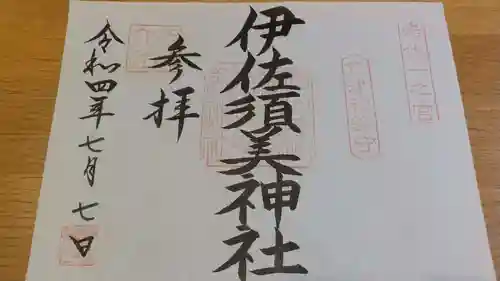 伊佐須美神社
参拝
令和四年七月七日